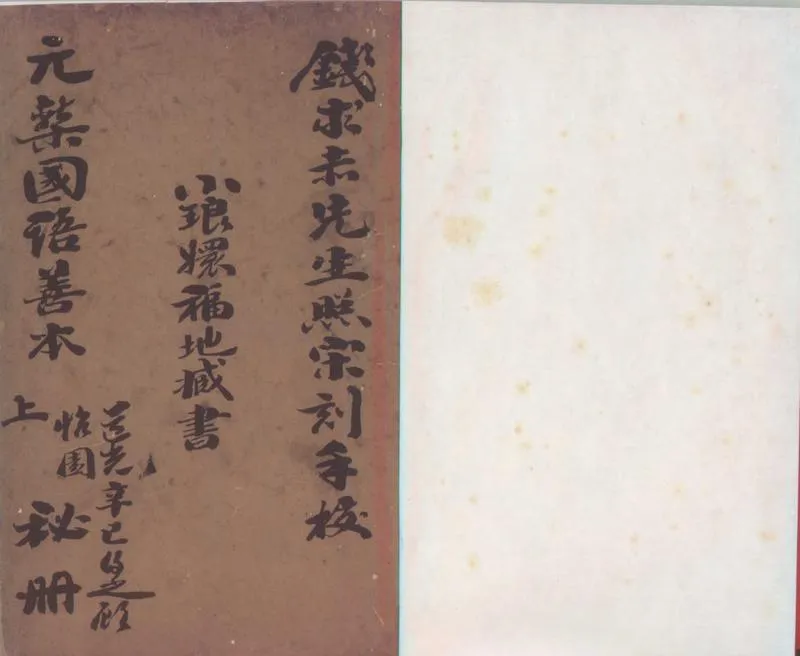 錢求赤先生照宋刻手校
小琅嬛福地臧書
元槧國語善本 上 秘册
道光辛巳得之顧
怡園